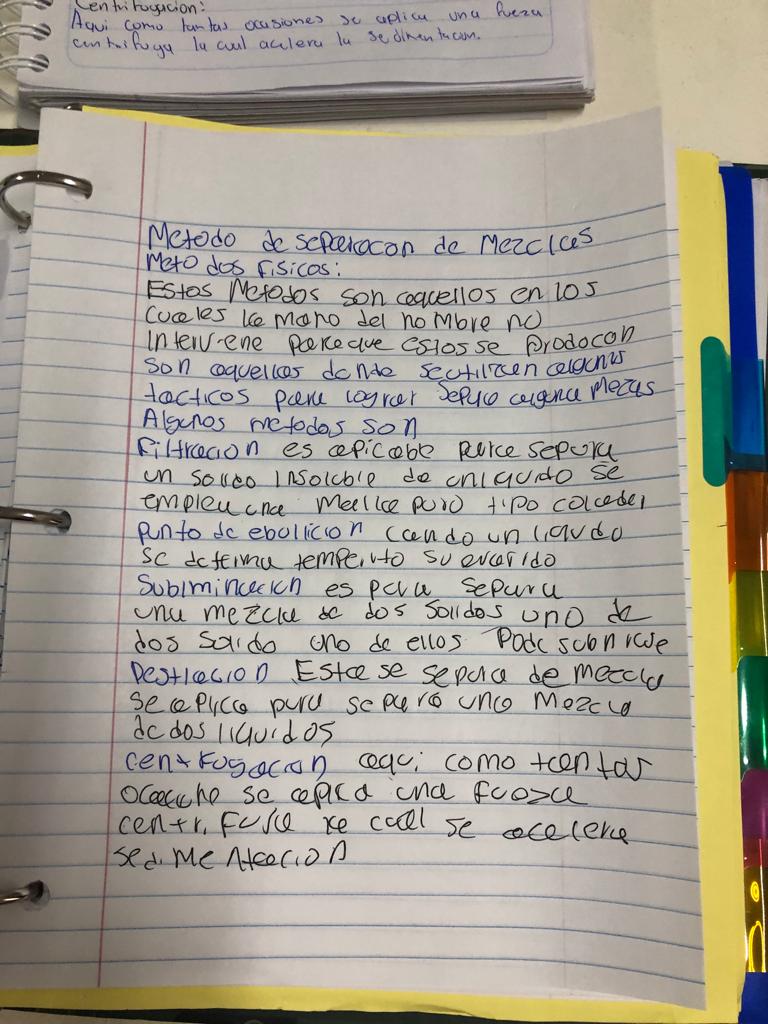 Centrifugacion:
Aqui como tantas ocasiones se aplica una fuerza
centrifuga la cual acelera la sedimentacion.
Metodo de separocon de Mezclas
Metodos fisicos:
Estos Metodos son aquellos en los
cuales la mano del hombre no
Interviene para que estos se prodocan
son aquellos donde se utilizan
tacticos para lograr separa alguna Mezclas
Algunos metodos son
Filtracion es aplicable para separa
un solido insoluble de un liquido se
emplea una para tipo colador
punto de ebullicion cando un liquido
se
Subliminacion es para separa
una mezcla de dos solidos uno de
dos solido uno de ellos Pode
Destilacion Esta se separa de mezcla
se aplica para separa una Mezcla
de dos liquidos
centrfugacion aqui como tantas
se aplica una
centrifuga cual se acelera
sedimentacion